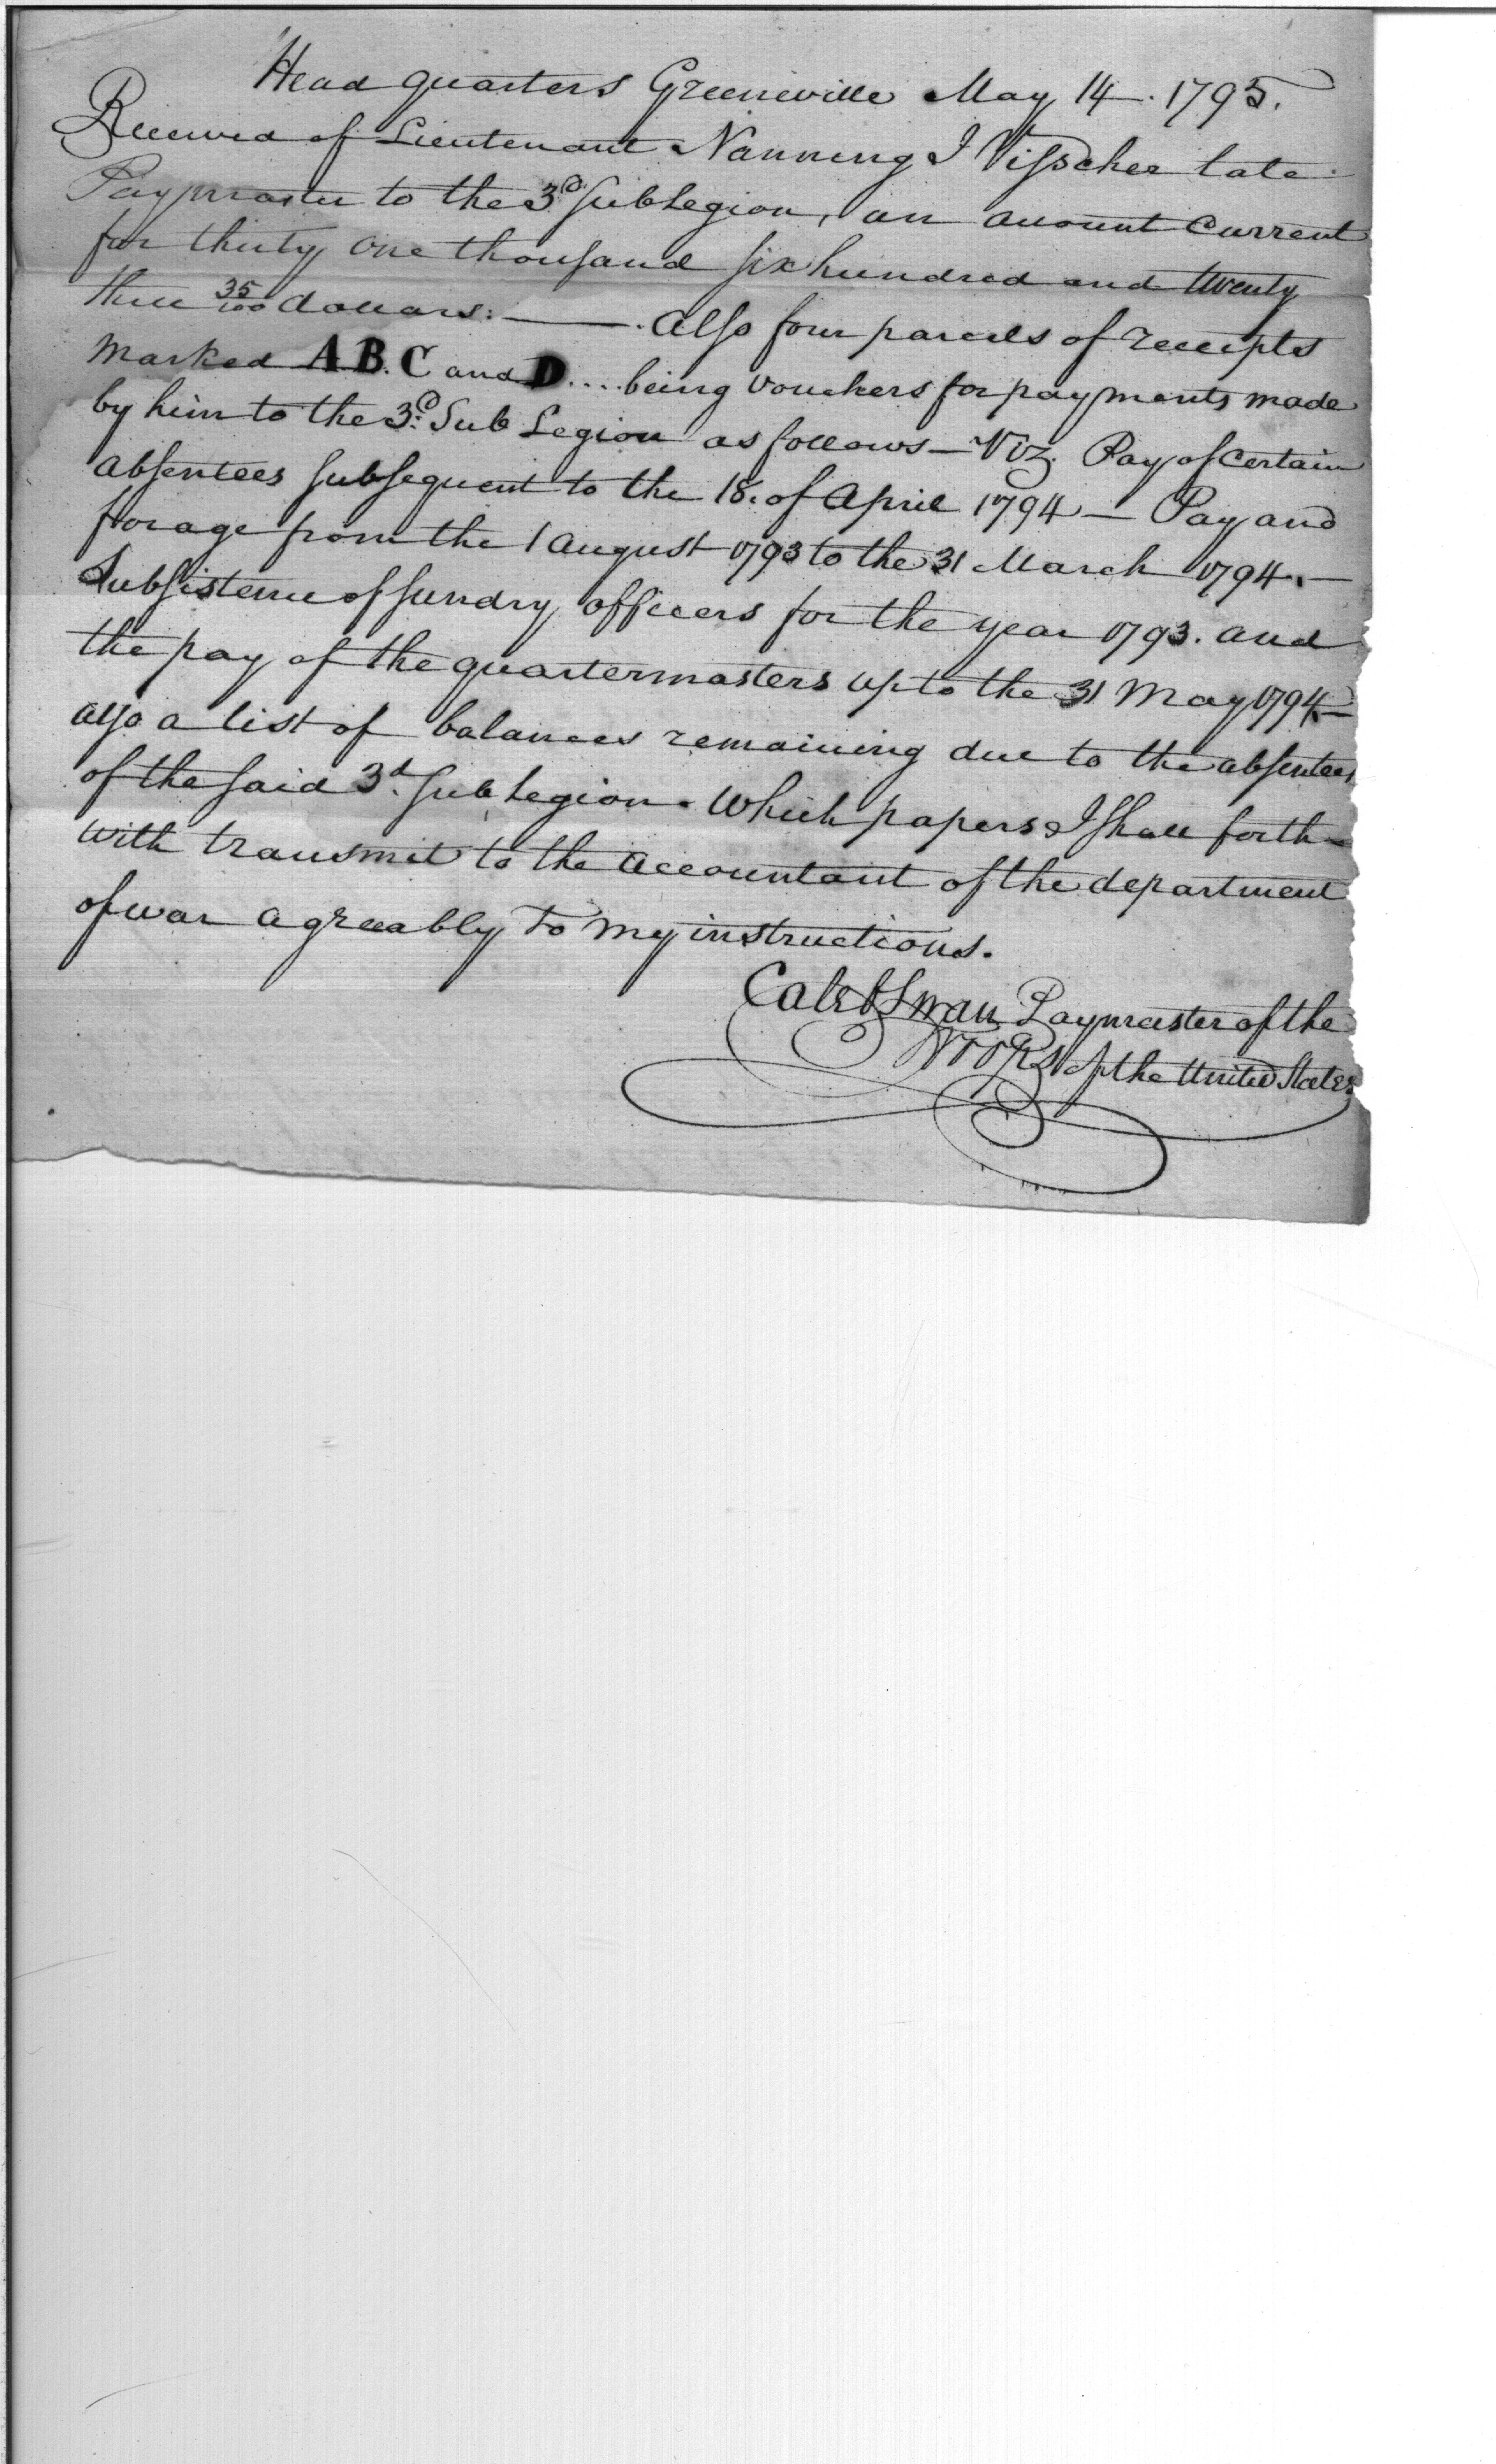 Head quarters Greeneville May 14. 1795.
Received of Lieutenant Nanning I Visscher late
Paymaster to the 3d. Sub Legion, an account current
for thirty one thousand six hundred and twenty
three 35/100 dollars: ——. also four parcels of receipts
marked A B. C and D .... being vouchers for payments made
by him to the 3d. Sub Legion as follows — Viz. Pay of certain
absentees subsequent to the 18. of April 1794 — Pay and
forage from the 1 august 1793 to the 31 March 1794. —
Subsistence of sundry officers for the year 1793. and
the pay of the quartermasters up to the 31 May 1794 —
also a list of balances remaining due to the absentees
of the said 3d. Sub Legion. Which papers I shall forth-
with transmit to the accountant of the department
of war agreeably to my instructions.
Caleb Swan Paymaster of the
Troops of the United States